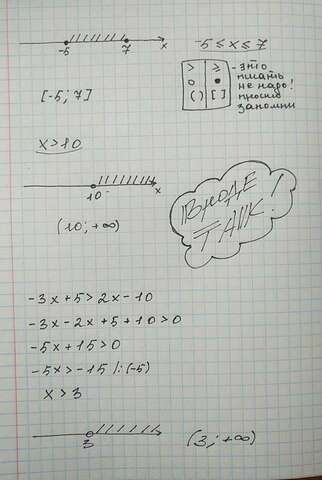 -5 7 x
-5 ≤ x ≤ 7
[-5; 7]
> ≥
○ ●
( ) [ ]
- это
писать
не надо!
просто
запомни
x > 10
10 x
(10; +∞)
ВРОДЕ
ТАК!
-3x + 5 > 2x - 10
-3x - 2x + 5 + 10 > 0
-5x + 15 > 0
-5x > -15 /: (-5)
x > 3
3
(3; +∞)